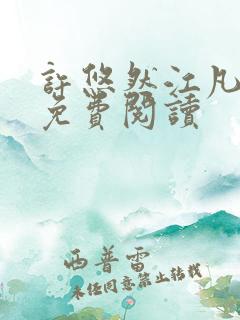 許悠然江凡
免費閱讀
西普雷
未经同意禁止转载